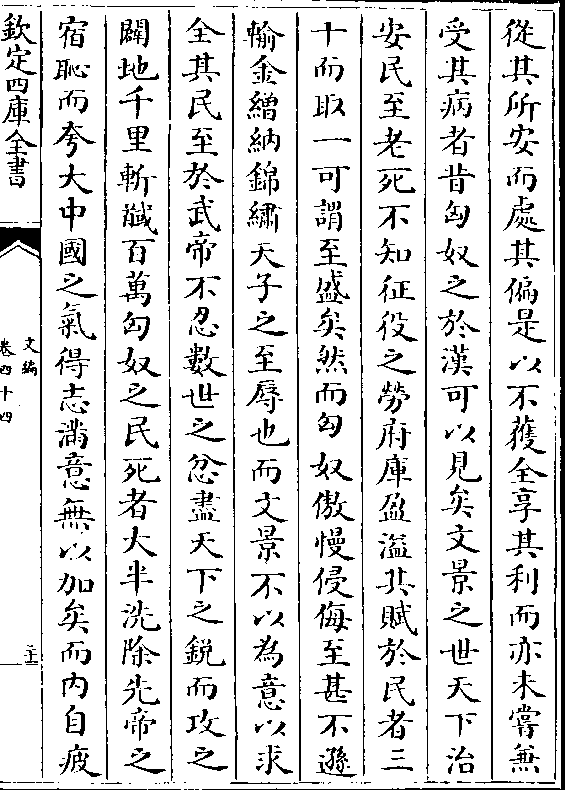 從其所安而處其偏是以不獲全享其利而亦未嘗無
受其病者昔匈奴之於漢可以見矣文景之世天下治
安民至老死不知征役之勞府庫盈溢其賦於民者三
十而取一可謂至盛矣然而匈奴傲慢侵侮至甚不遜
輸金繒納錦繡天子之至辱也而文景不以為意以求
全其民至於武帝不忍數世之忿盡天下之鋭而攻之
闢地千里斬馘百萬匈奴之民死者大半洗除先帝之
宿恥而夸大中國之氣得志滿意無以加矣而内自疲
欽定四庫全書
文編
卷四十四